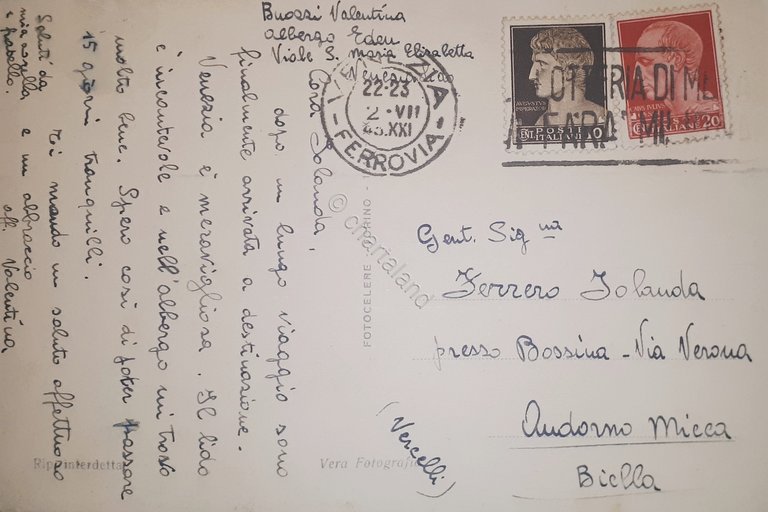 Buossi Valentina
albergo Eden
Viale S. Maria Elisabetta
Venezia Lido
Cara Jolanda,
dopo un lungo viaggio sono
finalmente arrivata a destinazione.
Venezia è meravigliosa. Il lido
è incantevole e nell'albergo mi trovo
molto bene. Spero così di poter passare
15 giorni tranquilli.
Ti mando un saluto affettuoso
e un abbraccio
aff. Valentina
Saluti da
mia sorella
e fratello.
VENEZIA
22-23
2·VII
43.XXI
FERROVIA
LOTTERIA DI ME
FARA' MI
AVGVSTVS
IMPERATOR
CENT. POSTE ITALIANE 10
CAIVS IVLIVS
CENT. POSTE ITALIANE 20
Gent. Sig.na
Ferrero Jolanda
presso Bossina - Via Verona
Andorno Micca
Biella
(Vercelli)
FOTOCELERE - TORINO -
© chartaland
Rip. interdetta
Vera Fotografia